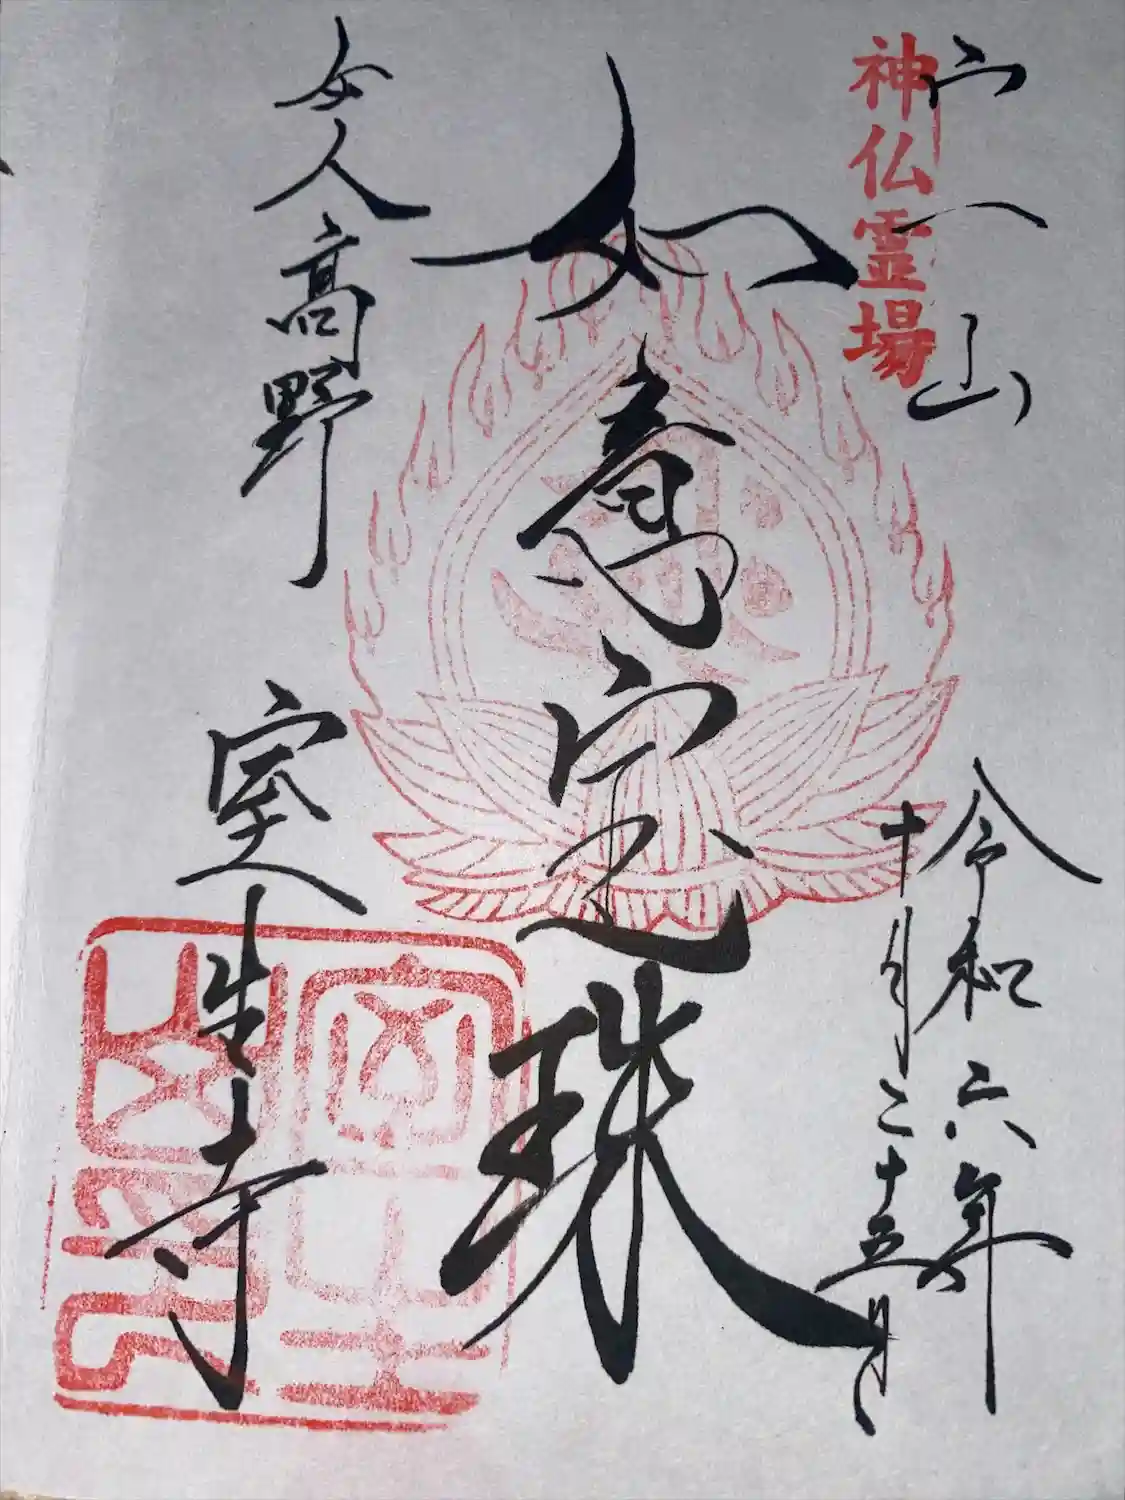 宀一山
神仏霊場
令和六年
十月二十五日
如意宝珠
女人高野 室生寺